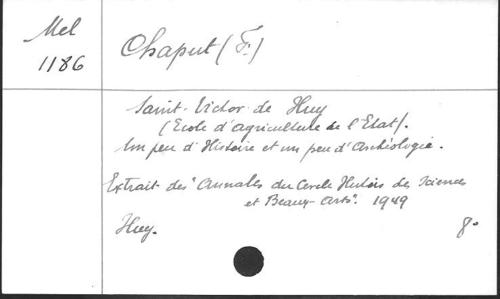 Mel
1186
Chaput (F.)
Saint-Victor de Huy
(Ecole d'agriculture de l'Etat).
Un peu d'Histoire et un peu d'Archéologie.
Extrait des "Annales du Cercle Hutois des Sciences
et Beaux-Arts". 1949
Huy. 8°